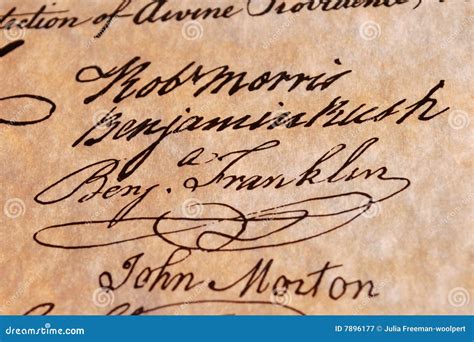 tection of divine Providence,
Robt Morris
Benjamin Rush
Benj. Franklin
John Morton
dreamstime.com
ID 7896177 © Julia Freeman-woolpert